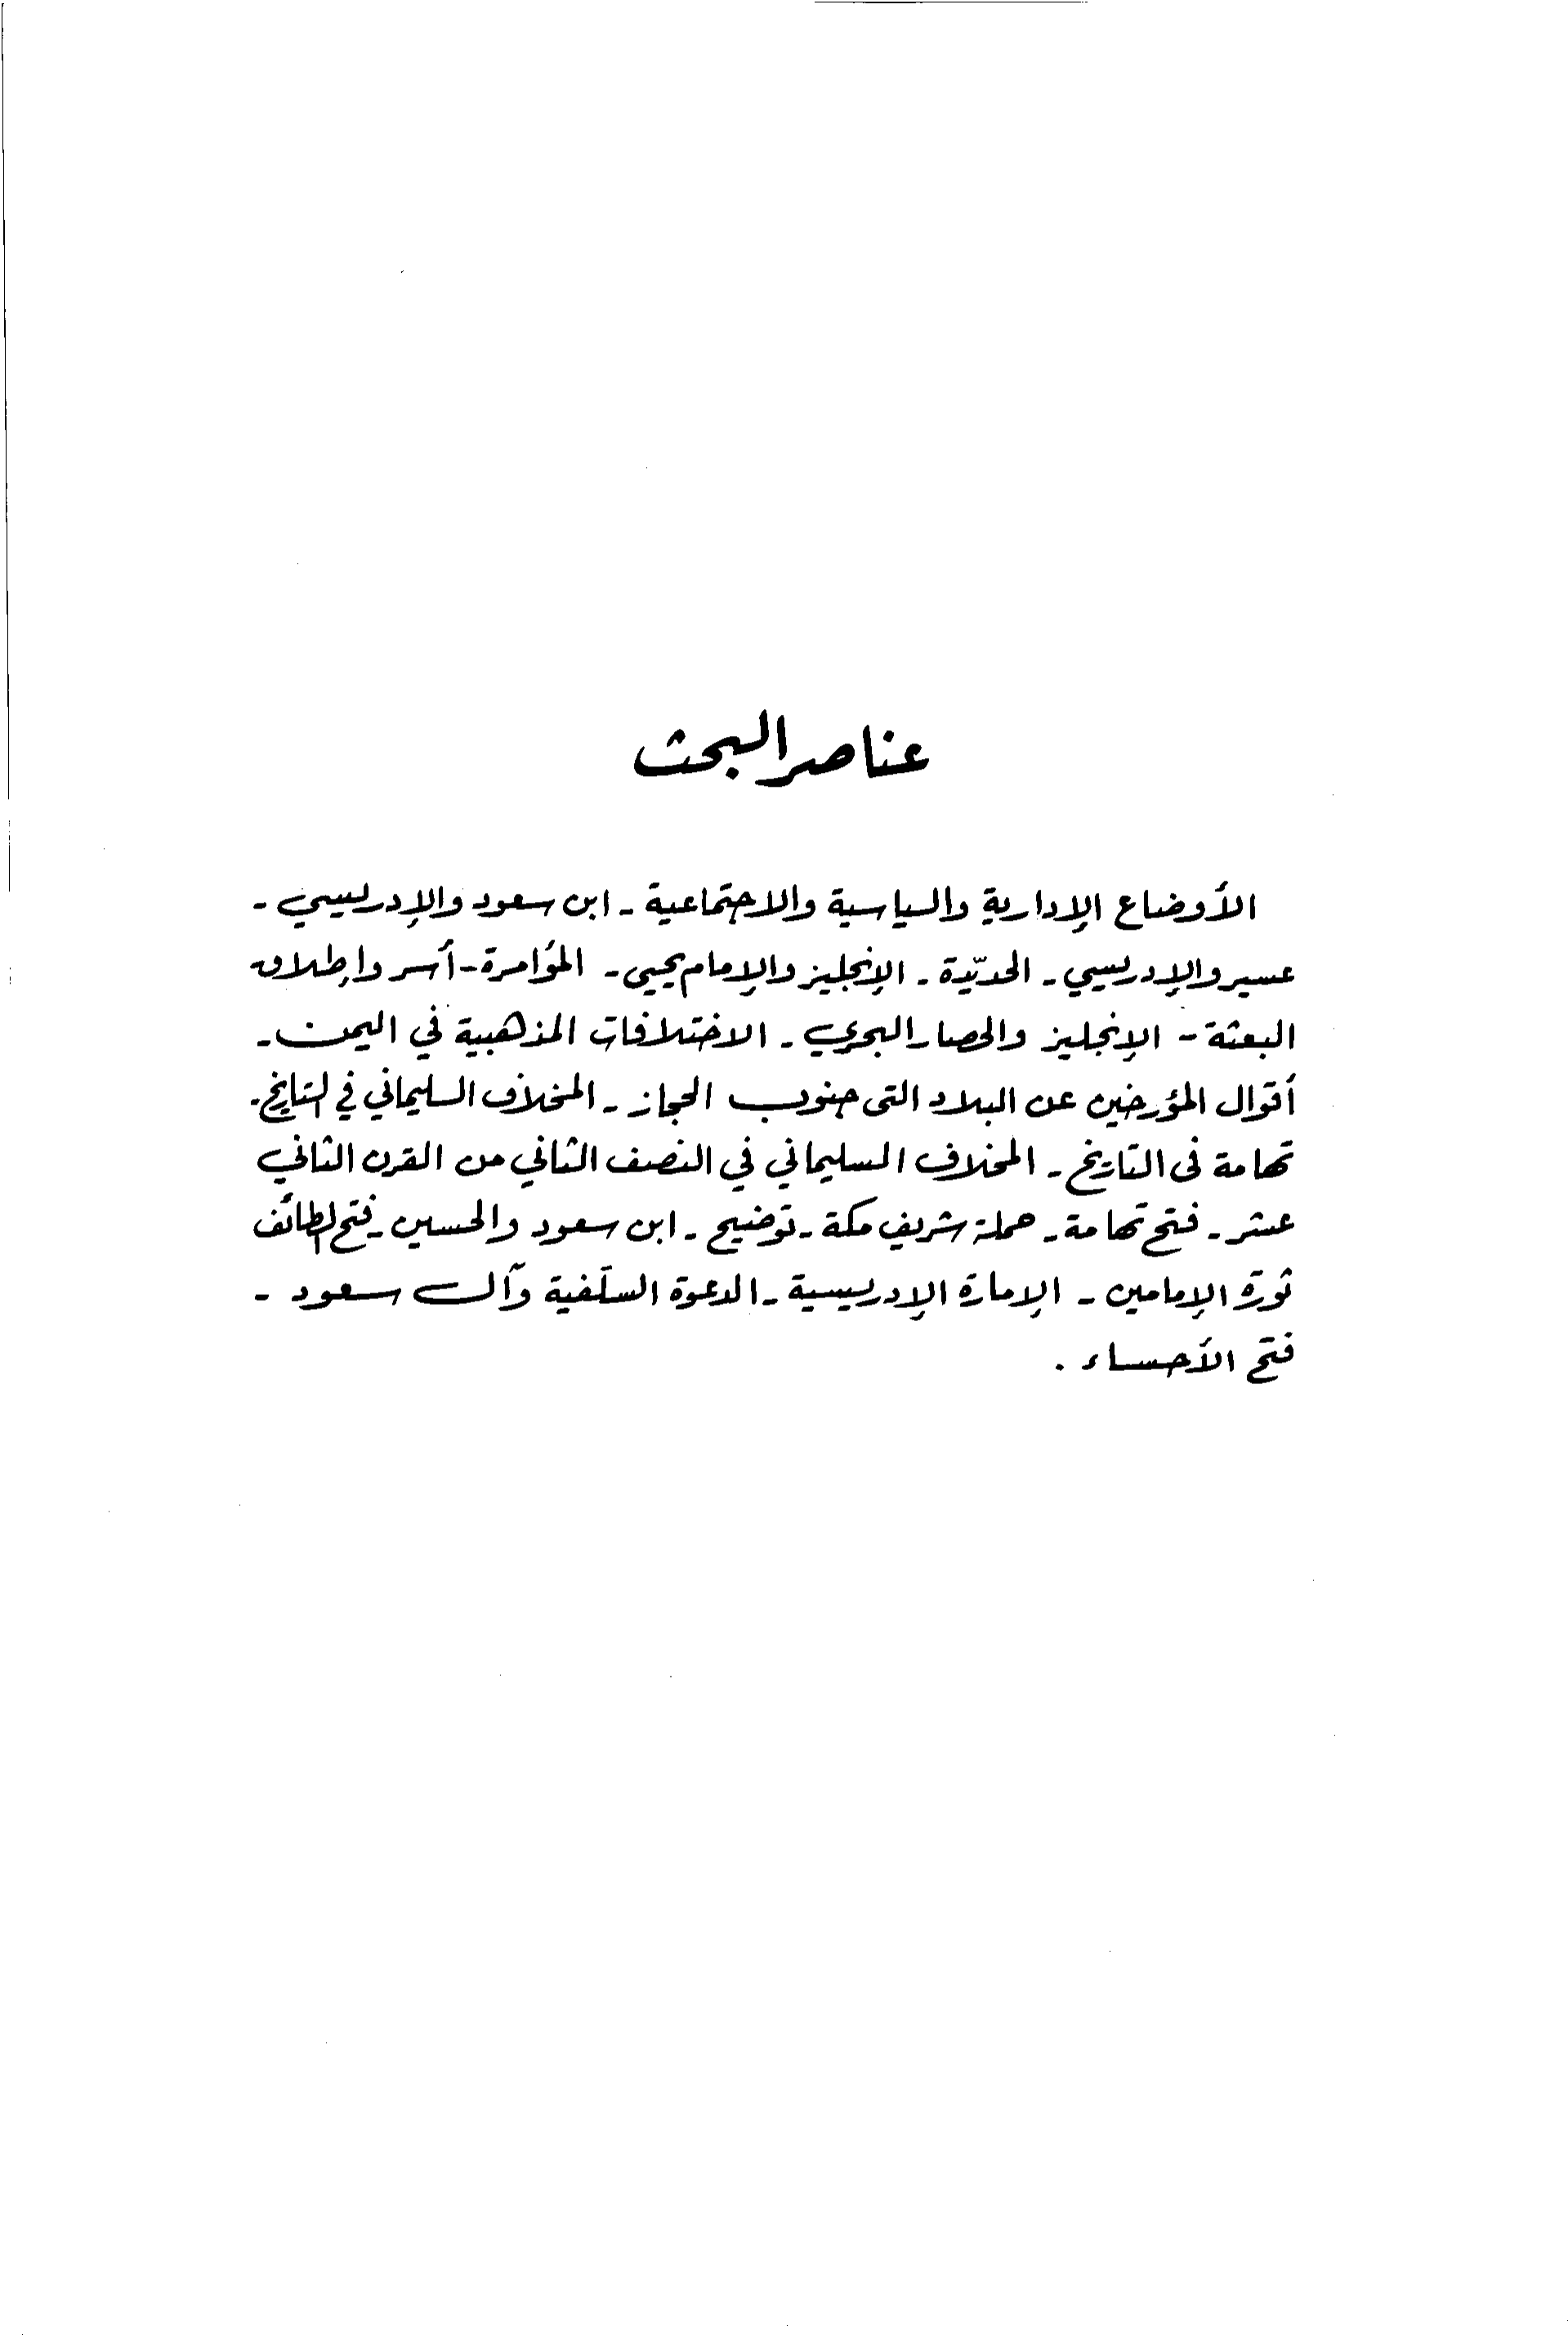 عناصر البحث
الأوضاع الإدارية والسياسية والاجتماعية - ابن سعود والإدريسي -
عسير والإدريسي - الحديّدة - الإنجليز والإمام يحيى - المؤامرة - أسر وإطلاق
البعثة - الإنجليز والحصار البحري - الاختلافات المذهبية في اليمن -
أقوال المؤرخين عن البلاد التى جنوب الحجاز - المخلاف السليماني في التاريخ -
تهامة فى التاريخ - المخلاف السليماني في النصف الثاني من القرن الثاني
عشر - فتح تهامة - حملة شريف مكة - توضيح - ابن سعود والحسين - فتح الطائف
ثورة الإمامين - الإمارة الإدريسية - الدعوة السلفية وآل سعود -
فتح الأحساء .